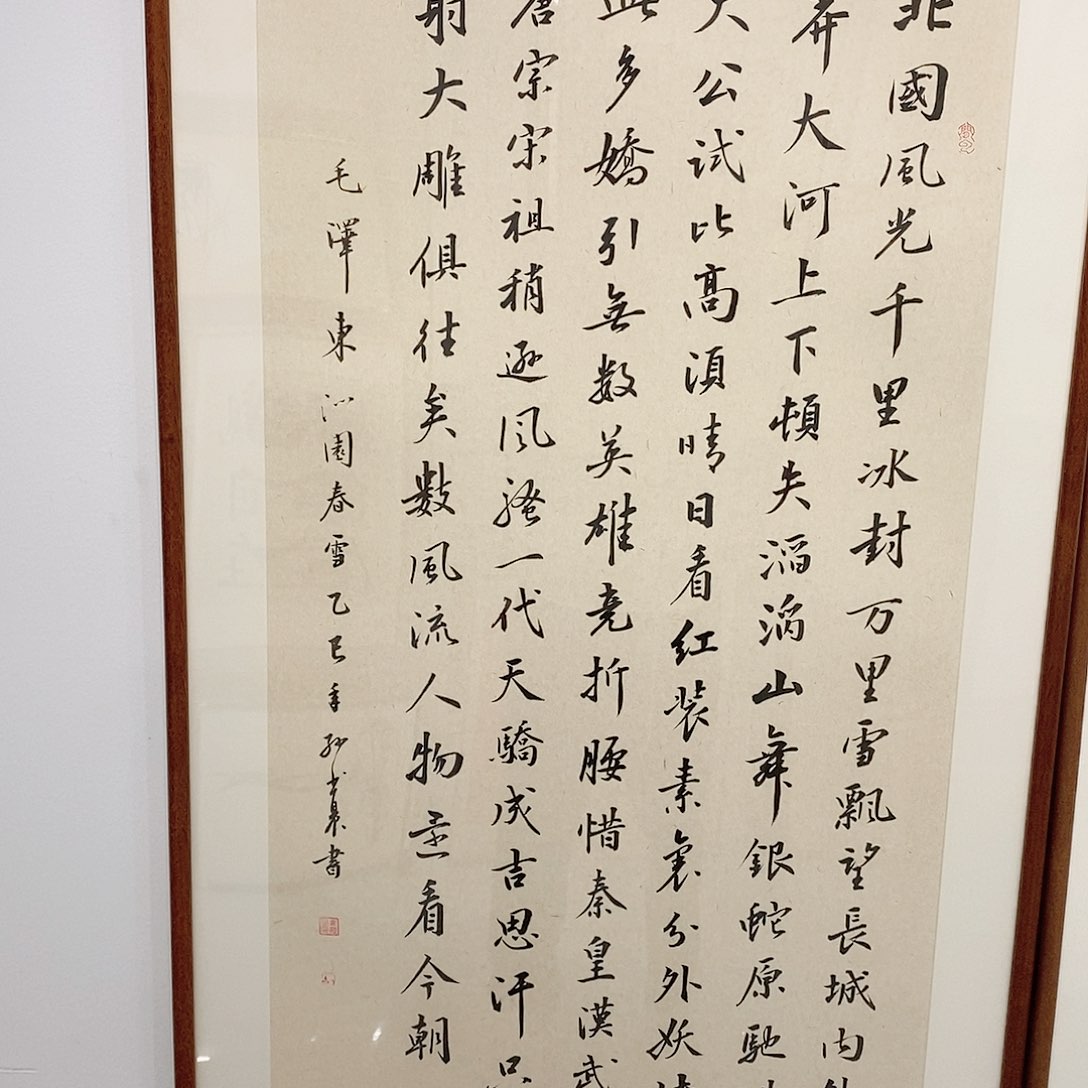 北國風光千里冰封万里雪飄望長城内外
莽大河上下頓失滔滔山舞銀蛇原馳
天公試比高須晴日看红装素裹分外妖
此多嬌引無数英雄竞折腰惜秦皇漢武
唐宗宋祖稍遜風騷一代天驕成吉思汗只
射大雕俱往矣數風流人物还看今朝
毛澤東沁園春雪乙巳年孙書